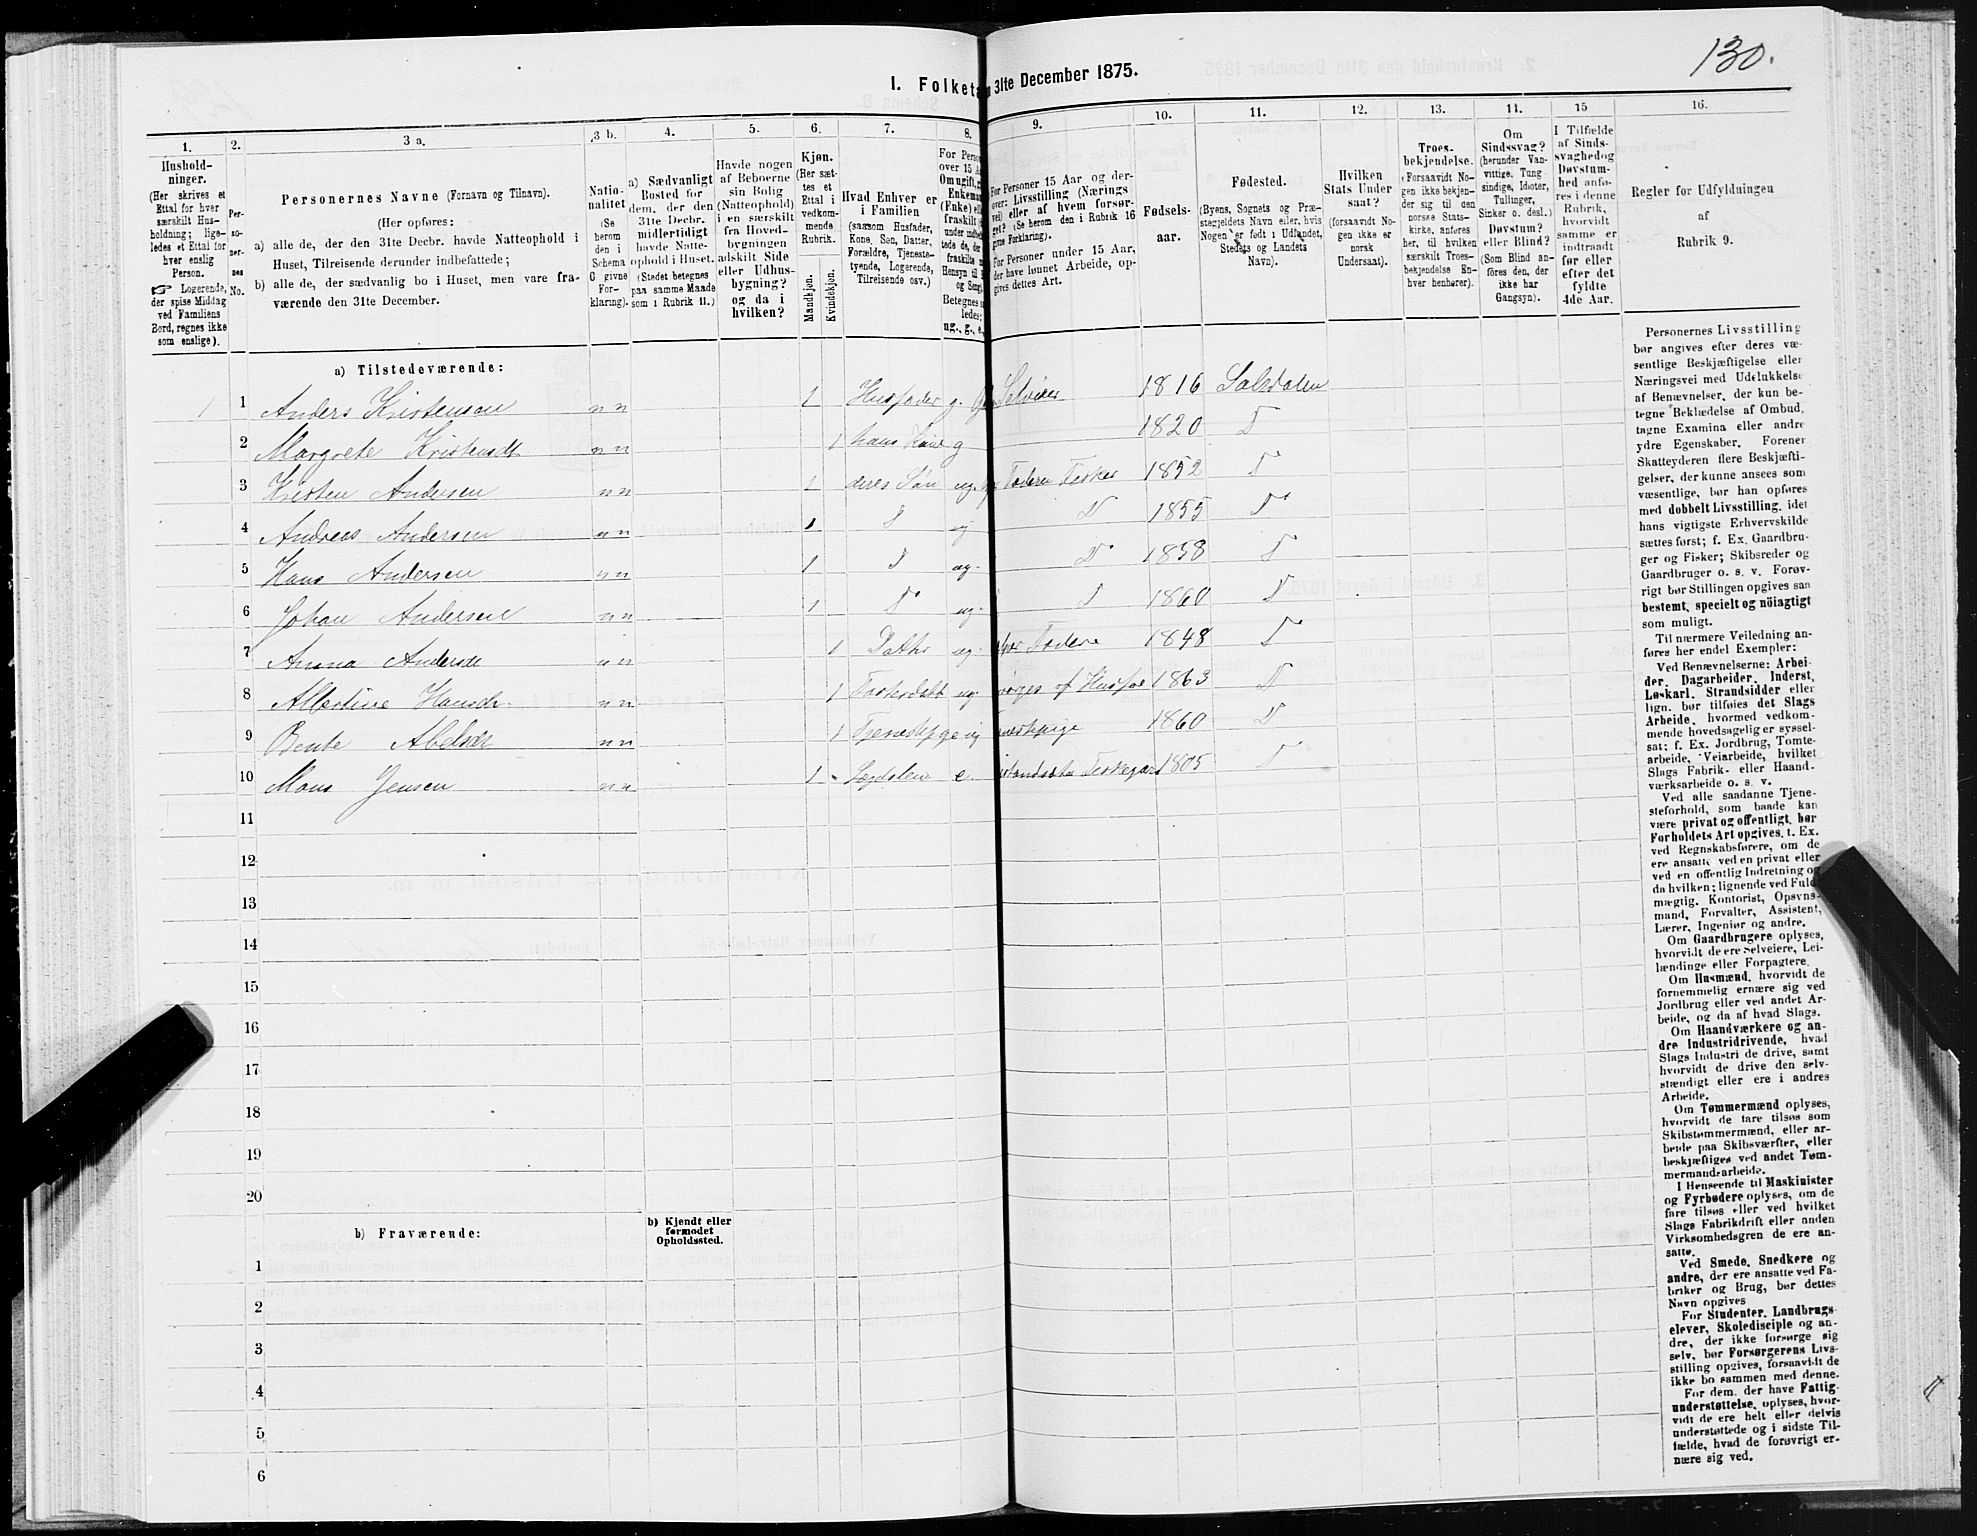 130.
I. Folketa
n 31te December 1875.
1.
Hushold-
ninger.
(Her skrives et
Ettal for hver
særskilt Hus-
holdning; lige-
ledes et Ettal for
hver enslig
Person.
☞ Logerende,
der spise Middag
ved Familiens
Bord, regnes ikke
som enslige).
2.
Per-
so-
ner-
nes
No.
3 a.
Personernes Navne (Fornavn og Tilnavn).
(Her opføres:
a) alle de, der den 31te Decbr. havde Natteophold i
Huset, Tilreisende derunder indbefattede;
b) alle de, der sædvanlig bo i Huset, men vare fra-
værende den 31te December.
3 b.
Natio-
nalitet
(Se
herom
den i
Schema
C givne
For-
klaring).
4.
a) Sædvanligt
Bosted for
dem, der den
31te Decbr.
midlertidigt
havde Natte-
ophold i Huset.
(Stedet betegnes
paa samme Maade
som i Rubrik 11.)
5.
Havde nogen
af Beboerne
sin Bolig
(Natteophold)
i en særskilt
fra Hoved-
bygningen
adskilt Side
eller Udhus-
bygning?
og da i
hvilken?
6.
Kjøn.
(Her sæt-
tes et
Ettal i
vedkom-
mende
Rubrik.
Mandkjøn.
Kvindekjøn.
7.
Hvad Enhver er
i Familien
(saasom Husfader,
Kone, Søn, Datter,
Forældre, Tjeneste-
tyende, Logerende,
Tilreisende osv.)
8.
For Perso
over 15 A
Om ugift, g
Enkema
(Enke) el
fraskilt
Betegnes s
ledes:
ug., g., e.
9.
For Personer 15 Aar og der-
over: Livsstilling (Nærings
vei) eller af hvem forsør-
get? (Se herom den i Rubrik 16
givne Forklaring).
For Personer under 15 Aar,
der have lønnet Arbeide, op-
gives dettes Art.
10.
Fødsels-
aar.
11.
Fødested.
(Byens, Sognets og Præ-
stegjeldets Navn eller, hvis
Nogen er født i Udlandet,
Stedets og Landets
Navn).
12.
Hvilken
Stats Under
saat?
(forsaavidt No-
gen ikke er
norsk
Undersaat).
13.
Troes-
bekjendelse.
(Forsaavidt No-
gen ikke bekjen-
der sig til den
norske Stats-
kirke, anføres
her, til hvilken
særskilt Troes-
bekjendelse En-
hver henhører).
14.
Om
Sindssvag?
(herunder Van-
vittige, Tung
sindige, Idioter,
Tullinger,
Sinker o. desl.)
Døvstum?
eller Blind?
(Som Blind an-
føres den, der
ikke har
Gangsyn).
15
I Tilfælde
af Sinds-
svaghed og
Døvstum-
hed anfø-
res i denne
Rubrik,
hvorvidt
samme er
indtraadt
før eller
efter det
fyldte
4de Aar.
16.
Regler for Udfyldningen
af
Rubrik 9.
a) Tilstedeværende:
1 1 Anders Kristensen n n 1 Husfader g. Selveier 1816 Salsdalen
2 Margrete Kristensdt n n 1 hans Kone g 1820 D
3 Kristen Andersen n n 1 deres Søn ug. Fisker 1852 D
4 Andreas Andersen n n 1 D ug D 1855 D
5 Hans Andersen n n 1 D ug. D 1858 D
6 Johan Andersen n n 1 D ug. D 1860 D
7 Anna Andersdt n n 1 Dattr ug. 1848 D
8 Albertine Hansdr. n n 1 Fosterdatt ug. af Husfar 1863 D
9 Bente Abelsdr n n 1 Tjenestpge ug 1860 D
10 Mons Jensen n n 1 e. 1805 D
11
12
13
14
15
16
17
18
19
20
b) Fraværende:
b) Kjendt eller
formodet
Opholdssted.
1
2
3
4
5
6
Personernes Livsstilling
bør angives efter deres væ-
sentlige Beskjæftigelse eller
Næringsvei med Udelukkelse
af Benævnelser, der kun be-
tegne Beklædelse af Ombud,
tagne Examina eller andre
ydre Egenskaber. Forener
Skatteyderen flere Beskjæfti-
gelser, der kunne ansees som
væsentlige, bør han opføres
med dobbelt Livsstilling, idet
hans vigtigste Erhvervskilde
sættes først; f. Ex. Gaardbru-
ger og Fisker; Skibsreder og
Gaardbruger o. s. v. Forøv-
rigt bør Stillingen opgives saa
bestemt, specielt og nöiagtigt
som muligt.
Til nærmere Veiledning an-
føres her endel Exempler:
Ved Benævnelserne: Arbei-
der, Dagarbeider, Inderst,
Løskarl, Strandsidder eller
lign. bør tilføies det Slags
Arbeide, hvormed vedkom-
mende hovedsagelig er syssel-
sat; f. Ex. Jordbrug, Tomte-
arbeide, Veiarbeide, hvilket
Slags Fabrik- eller Haand-
værksarbeide o. s. v.
Ved alle saadanne Tjene-
steforhold, som baade kan
være privat og offentligt, bør
Forholdets Art opgives, t. Ex.
ved Regnskabsførere, om de
ere ansatte ved en privat eller
ved en offentlig Indretning og
da hvilken; lignende ved Fuld-
mægtig, Kontorist, Opsyns-
mand, Forvalter, Assistent,
Lærer, Ingeniør og andre.
Om Gaardbrugere oplyses,
hvorvidt de ere Selveiere, Lei-
lændinge eller Forpagtere.
Om Husmænd, hvorvidt de
fornemmelig ernære sig ved
Jordbrug eller ved andet Ar-
beide, og da af hvad Slags.
Om Haandværkere og an-
dre Industridrivende, hvad
Slags Industri de drive, samt
hvorvidt de drive den selv-
stændigt eller ere i andres
Arbeide.
Om Tømmermænd oplyses,
hvorvidt de fare tilsøs som
Skibstømmermænd, eller ar-
beide paa Skibsværfter, eller
beskjæftiges ved andet Tøm-
mermandsarbeide.
I Henseende til Maskinister
og Fyrbødere oplyses, om de
fare tilsøs eller ved hvilket
Slags Fabrikdrift eller anden
Virksomhedsgren de ere an-
satte.
Ved Smede, Snedkere og
andre, der ere ansatte ved Fa-
briker og Brug, bør dettes
Navn opgives
For Studenter, Landbrugs
elever, Skoledisciple og an-
dre, der ikke forsørge sig
selv, bør Forsørgerens Livs-
stilling opgives, forsaavidt de
ikke bo sammen med denne.
For dem, der have Fattig-
understøttelse, oplyses, hvor-
vidt de ere helt eller delvis
understøttede og i sidste Til-
fælde, hvad de forøvrigt er-
nære sig ved.